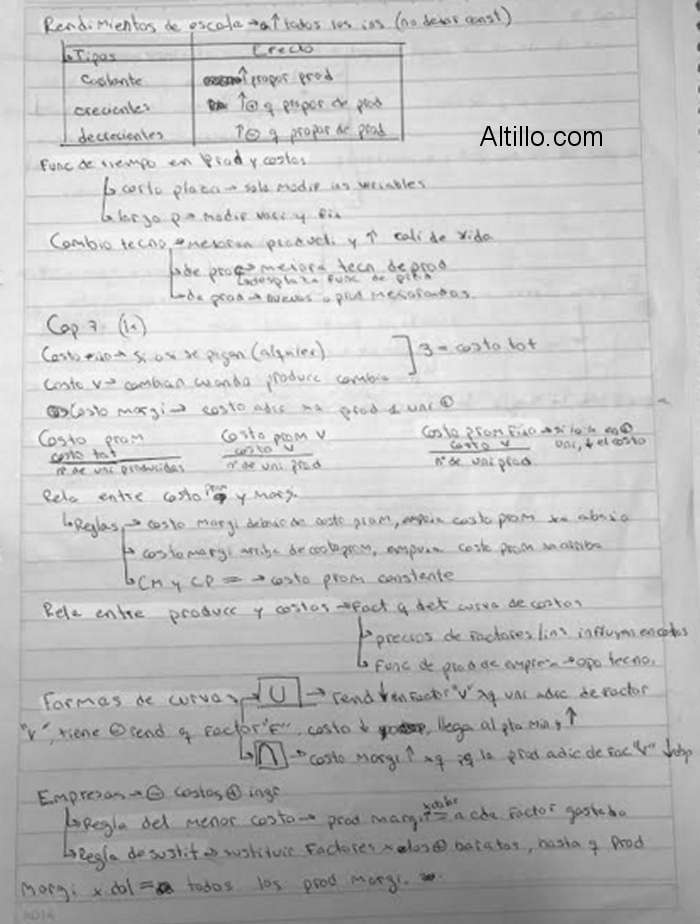 Rendimientos de escala → a ↑ todos los ins (no dejar const)
Tipos Efecto
Costante ↑ propor prod
crecientes ↑ ⊕ q propor de prod
decrecientes ↑ ⊖ q propor de prod
Altillo.com
Func de tiempo en Prod y costos
corto plazo → solo modif ins variables
largo p → modif vari y fix
Cambio tecno → mejoran producti y ↑ cali de vida
de proc → mejora tecn de prod
desplaza func de prod
de prod → nuevos o prod mejorados.
Cap 7 (1c)
Costo → si o si se pagan (alquiler) ] 3 = costo tot
Costo V → cambian cuando produce cambia
Costo margi → costo adic xa prod 1 uni ⊕
Costo prom Costo prom V Costo prom fijo → si lo a en ⊕
costo tot costo V costo V uni, ↓ el costo
n° de uni producidas n° de uni prod n° de uni prod
Rela entre costo prom y margi
Reglas → costo margi debajo de costo prom, empuja costo prom xa abajo
costo margi arriba de costo prom, empuja costo prom xa arriba
CM y CP = → costo prom constante
Rela entre producc y costos → Fact q det curva de costos
precios de factores/ins influyen en costos
Func de prod de empresa → tecno.
Formas de curvas → U → rend ↓ en factor "V" xq uni adic de factor
"V", tiene ⊖ rend q factor "F", costo ↓, llega al pto min y ↑
∩ → costo margi ↑ xq la prod adic de fac "V" ↓
Empresas → ⊖ costos ⊕ ingr
Regla del menor costo → prod margi x dolar = a cda factor gastado
Regla de sustit → sustituir factores x los ⊕ baratos, hasta q Prod
margi x dol = a todos los prod margi.